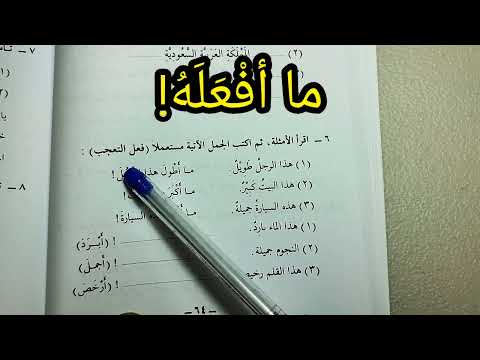 (٢) الْمَمْلَكَةِ الْعَرَبِيَّةِ السَّعُودِيَّةِ
ما أفْعَلَهُ!
٧ ـ
٦ ـ اقرأ الأمثلة، ثم اكتب الجمل الآتية مستعملا (فعل التعجب) :
(١) هذا الرجلُ طَوِيْلٌ. ما أَطْوَلَ هذا
(٢) هذا البيتُ كَبِيْرٌ. ما أَكْبَرَ
(٣) هذه السيارةُ جميلةٌ. ما السيارةَ!
(١) هذا الماء باردٌ. ! (أَبْرَدَ)
(٢) النجوم جميلة. ! (أجملَ)
(٣) هذا القلم ! (أَرْخَصَ)
٨ ـ
ـ ٦٤ ـ